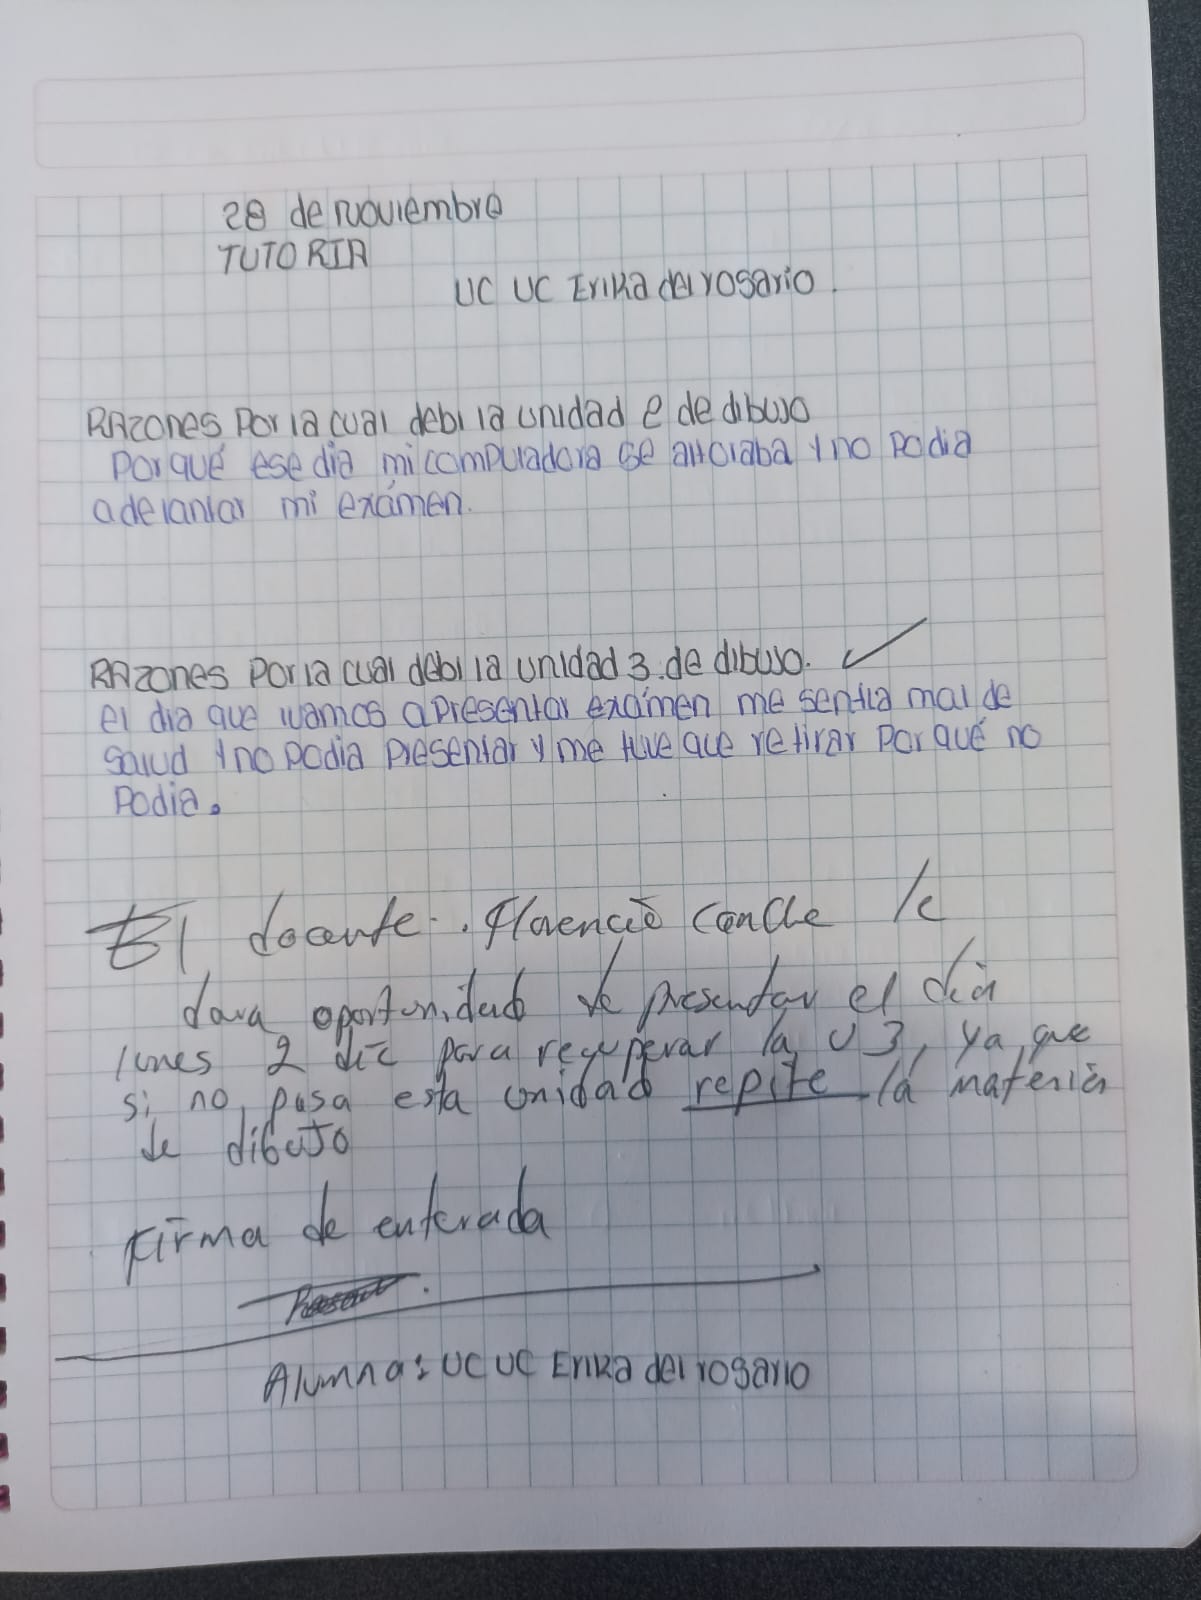 28 de noviembre
TUTORIA
UC UC Erika del rosario.
RAZONES Por la cual debi la unidad 2 de dibujo
Porqué ese dia mi computadora se attoraba y no podia
adelantar mi exámen.
RAZONES Por la cual debi la unidad 3. de dibujo.
el dia que ivamos a presentar exámen me sentia mal de
salud y no podia presentar y me tuve que retirar porqué no
podia.
El docente. Florencio Canche le
dara oportunidad de presentar el día
lunes 2 dic para recuperar la U3, ya que
si no pasa esta unidad repite la materia
de dibujo
Firma de enterada
Alumna: UC UC Erika del rosario